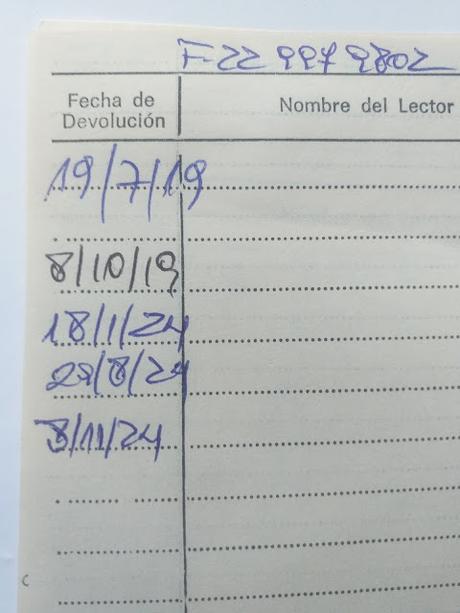 F-22 997 9802
Fecha de Devolución
Nombre del Lector
19/7/19
8/10/19
18/1/24
29/8/24
8/11/24
c